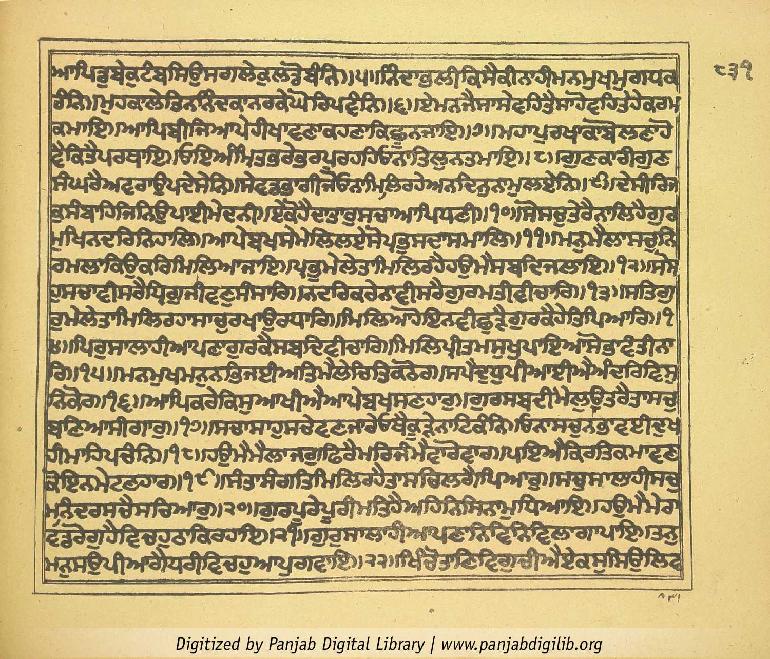 ਆਪਿ ਡੁਬੇ ਕੁਟੰਬ ਸਿਉ ਸਗਲੇ ਕੁਲ ਡੋਬੰਨਿ ॥੫॥ ਨਿੰਦਾ ਭਲੀ ਕਿਸੈ ਕੀ ਨਾਹੀ ਮਨਮੁਖ ਮੁਗਧ ਕ
ਰੰਨਿ ॥ ਮੁਹ ਕਾਲੇ ਤਿਨ ਨਿੰਦਕਾ ਨਰਕੇ ਘੋਰਿ ਪਵੰਨਿ ॥੬॥ ਏ ਮਨ ਜੈਸਾ ਸੇਵਹਿ ਤੈਸਾ ਹੋਵਹਿ ਤੇਹੇ ਕਰਮ
ਕਮਾਇ ॥ ਆਪਿ ਬੀਜਿ ਆਪੇ ਹੀ ਖਾਵਣਾ ਕਹਣਾ ਕਿਛੂ ਨ ਜਾਇ ॥੭॥ ਮਹਾ ਪੁਰਖਾ ਕਾ ਬੋਲਣਾ ਹੋ
ਵੈ ਕਿਤੈ ਪਰਥਾਇ ॥ ਓਇ ਅੰਮ੍ਰਿਤ ਭਰੇ ਭਰਪੂਰ ਹਹਿ ਓਨਾ ਤਿਲੁ ਨ ਤਮਾਇ ॥੮॥ ਗੁਣਕਾਰੀ ਗੁਣ
ਸੰਘਰੈ ਅਵਰਾ ਉਪਦੇਸੇਨਿ ॥ ਸੇ ਵਡਭਾਗੀ ਜਿ ਓਨਾ ਮਿਲਿ ਰਹੇ ਅਨਦਿਨੁ ਨਾਮੁ ਲਏਨਿ ॥੯॥ ਦੇਸੀ ਰਿਜ
ਕੁ ਸੰਬਾਹਿ ਜਿਨਿ ਉਪਾਈ ਮੇਦਨੀ ॥ ਏਕੋ ਹੈ ਦਾਤਾਰੁ ਸਚਾ ਆਪਿ ਧਣੀ ॥੧੦॥ ਸੋ ਸਚੁ ਤੇਰੈ ਨਾਲਿ ਹੈ ਗੁਰ
ਮੁਖਿ ਨਦਰਿ ਨਿਹਾਲਿ ॥ ਆਪੇ ਬਖਸੇ ਮੇਲਿ ਲਏ ਸੋ ਪ੍ਰਭੁ ਸਦਾ ਸਮਾਲਿ ॥੧੧॥ ਮਨੁ ਮੈਲਾ ਸਚੁ ਨਿ
ਰਮਲਾ ਕਿਉ ਕਰਿ ਮਿਲਿਆ ਜਾਇ ॥ ਪ੍ਰਭੁ ਮੇਲੇ ਤਾ ਮਿਲਿ ਰਹੈ ਹਉਮੈ ਸਬਦਿ ਜਲਾਇ ॥੧੨॥ ਸੋ ਸ
ਹੁ ਸਚਾ ਵੀਸਰੈ ਧ੍ਰਿਗੁ ਜੀਵਣੁ ਸੰਸਾਰਿ ॥ ਨਦਰਿ ਕਰੇ ਨਾ ਵੀਸਰੈ ਗੁਰਮਤੀ ਵੀਚਾਰਿ ॥੧੩॥ ਸਤਿਗੁ
ਰੁ ਮੇਲੇ ਤਾ ਮਿਲਿ ਰਹਾ ਸਾਚੁ ਰਖਾ ਉਰ ਧਾਰਿ ॥ ਮਿਲਿਆ ਹੋਇ ਨ ਵੀਛੁੜੈ ਗੁਰ ਕੈ ਹੇਤਿ ਪਿਆਰਿ ॥੧
੪॥ ਪਿਰੁ ਸਾਲਾਹੀ ਆਪਣਾ ਗੁਰ ਕੈ ਸਬਦਿ ਵੀਚਾਰਿ ॥ ਮਿਲਿ ਪ੍ਰੀਤਮ ਸੁਖੁ ਪਾਇਆ ਸੋਭਾਵੰਤੀ ਨਾ
ਰਿ ॥੧੫॥ ਮਨਮੁਖ ਮਨੁ ਨ ਭਿਜਈ ਅਤਿ ਮੈਲੇ ਚਿਤਿ ਕਠੋਰ ॥ ਸਪੈ ਦੁਧੁ ਪੀਆਈਐ ਅੰਦਰਿ ਵਿਸੁ
ਨਿਕੋਰ ॥੧੬॥ ਆਪਿ ਕਰੇ ਕਿਸੁ ਆਖੀਐ ਆਪੇ ਬਖਸਣਹਾਰੁ ॥ ਗੁਰ ਸਬਦੀ ਮੈਲੁ ਉਤਰੈ ਤਾ ਸਚੁ
ਬਣਿਆ ਸੀਗਾਰੁ ॥੧੭॥ ਸਚਾ ਸਾਹੁ ਸਚੇ ਵਣਜਾਰੇ ਓਥੈ ਕੂੜੇ ਨਾ ਟਿਕੰਨਿ ॥ ਓਨਾ ਸਚੁ ਨ ਭਾਵਈ ਦੁਖ
ਹੀ ਮਾਹਿ ਪਚੰਨਿ ॥੧੮॥ ਹਉਮੈ ਮੈਲਾ ਜਗੁ ਫਿਰੈ ਮਰਿ ਜੰਮੈ ਵਾਰੋ ਵਾਰ ॥ ਪਇਐ ਕਿਰਤਿ ਕਮਾਵਣਾ
ਕੋਇ ਨ ਮੇਟਣਹਾਰ ॥੧੯॥ ਸੰਤਾ ਸੰਗਤਿ ਮਿਲਿ ਰਹੈ ਤਾ ਸਚਿ ਲਗੈ ਪਿਆਰੁ ॥ ਸਚੁ ਸਲਾਹੀ ਸਚੁ
ਮਨਿ ਦਰਿ ਸਚੈ ਸਚਿਆਰੁ ॥੨੦॥ ਗੁਰ ਪੂਰੇ ਪੂਰੀ ਮਤਿ ਹੈ ਅਹਿਨਿਸਿ ਨਾਮੁ ਧਿਆਇ ॥ ਹਉਮੈ ਮੇਰਾ
ਵਡ ਰੋਗੁ ਹੈ ਵਿਚਹੁ ਠਾਕਿ ਰਹਾਇ ॥੨੧॥ ਗੁਰੁ ਸਾਲਾਹੀ ਆਪਣਾ ਨਿਵਿ ਨਿਵਿ ਲਾਗਾ ਪਾਇ ॥ ਤਨੁ
ਮਨੁ ਸਉਪੀ ਆਗੈ ਧਰੀ ਵਿਚਹੁ ਆਪੁ ਗਵਾਇ ॥੨੨॥ ਖਿੰਚੋਤਾਣਿ ਵਿਗੁਚੀਐ ਏਕਸੁ ਸਿਉ ਲਿਵ
੮੩੧
Digitized by Panjab Digital Library | www.panjabdigilib.org